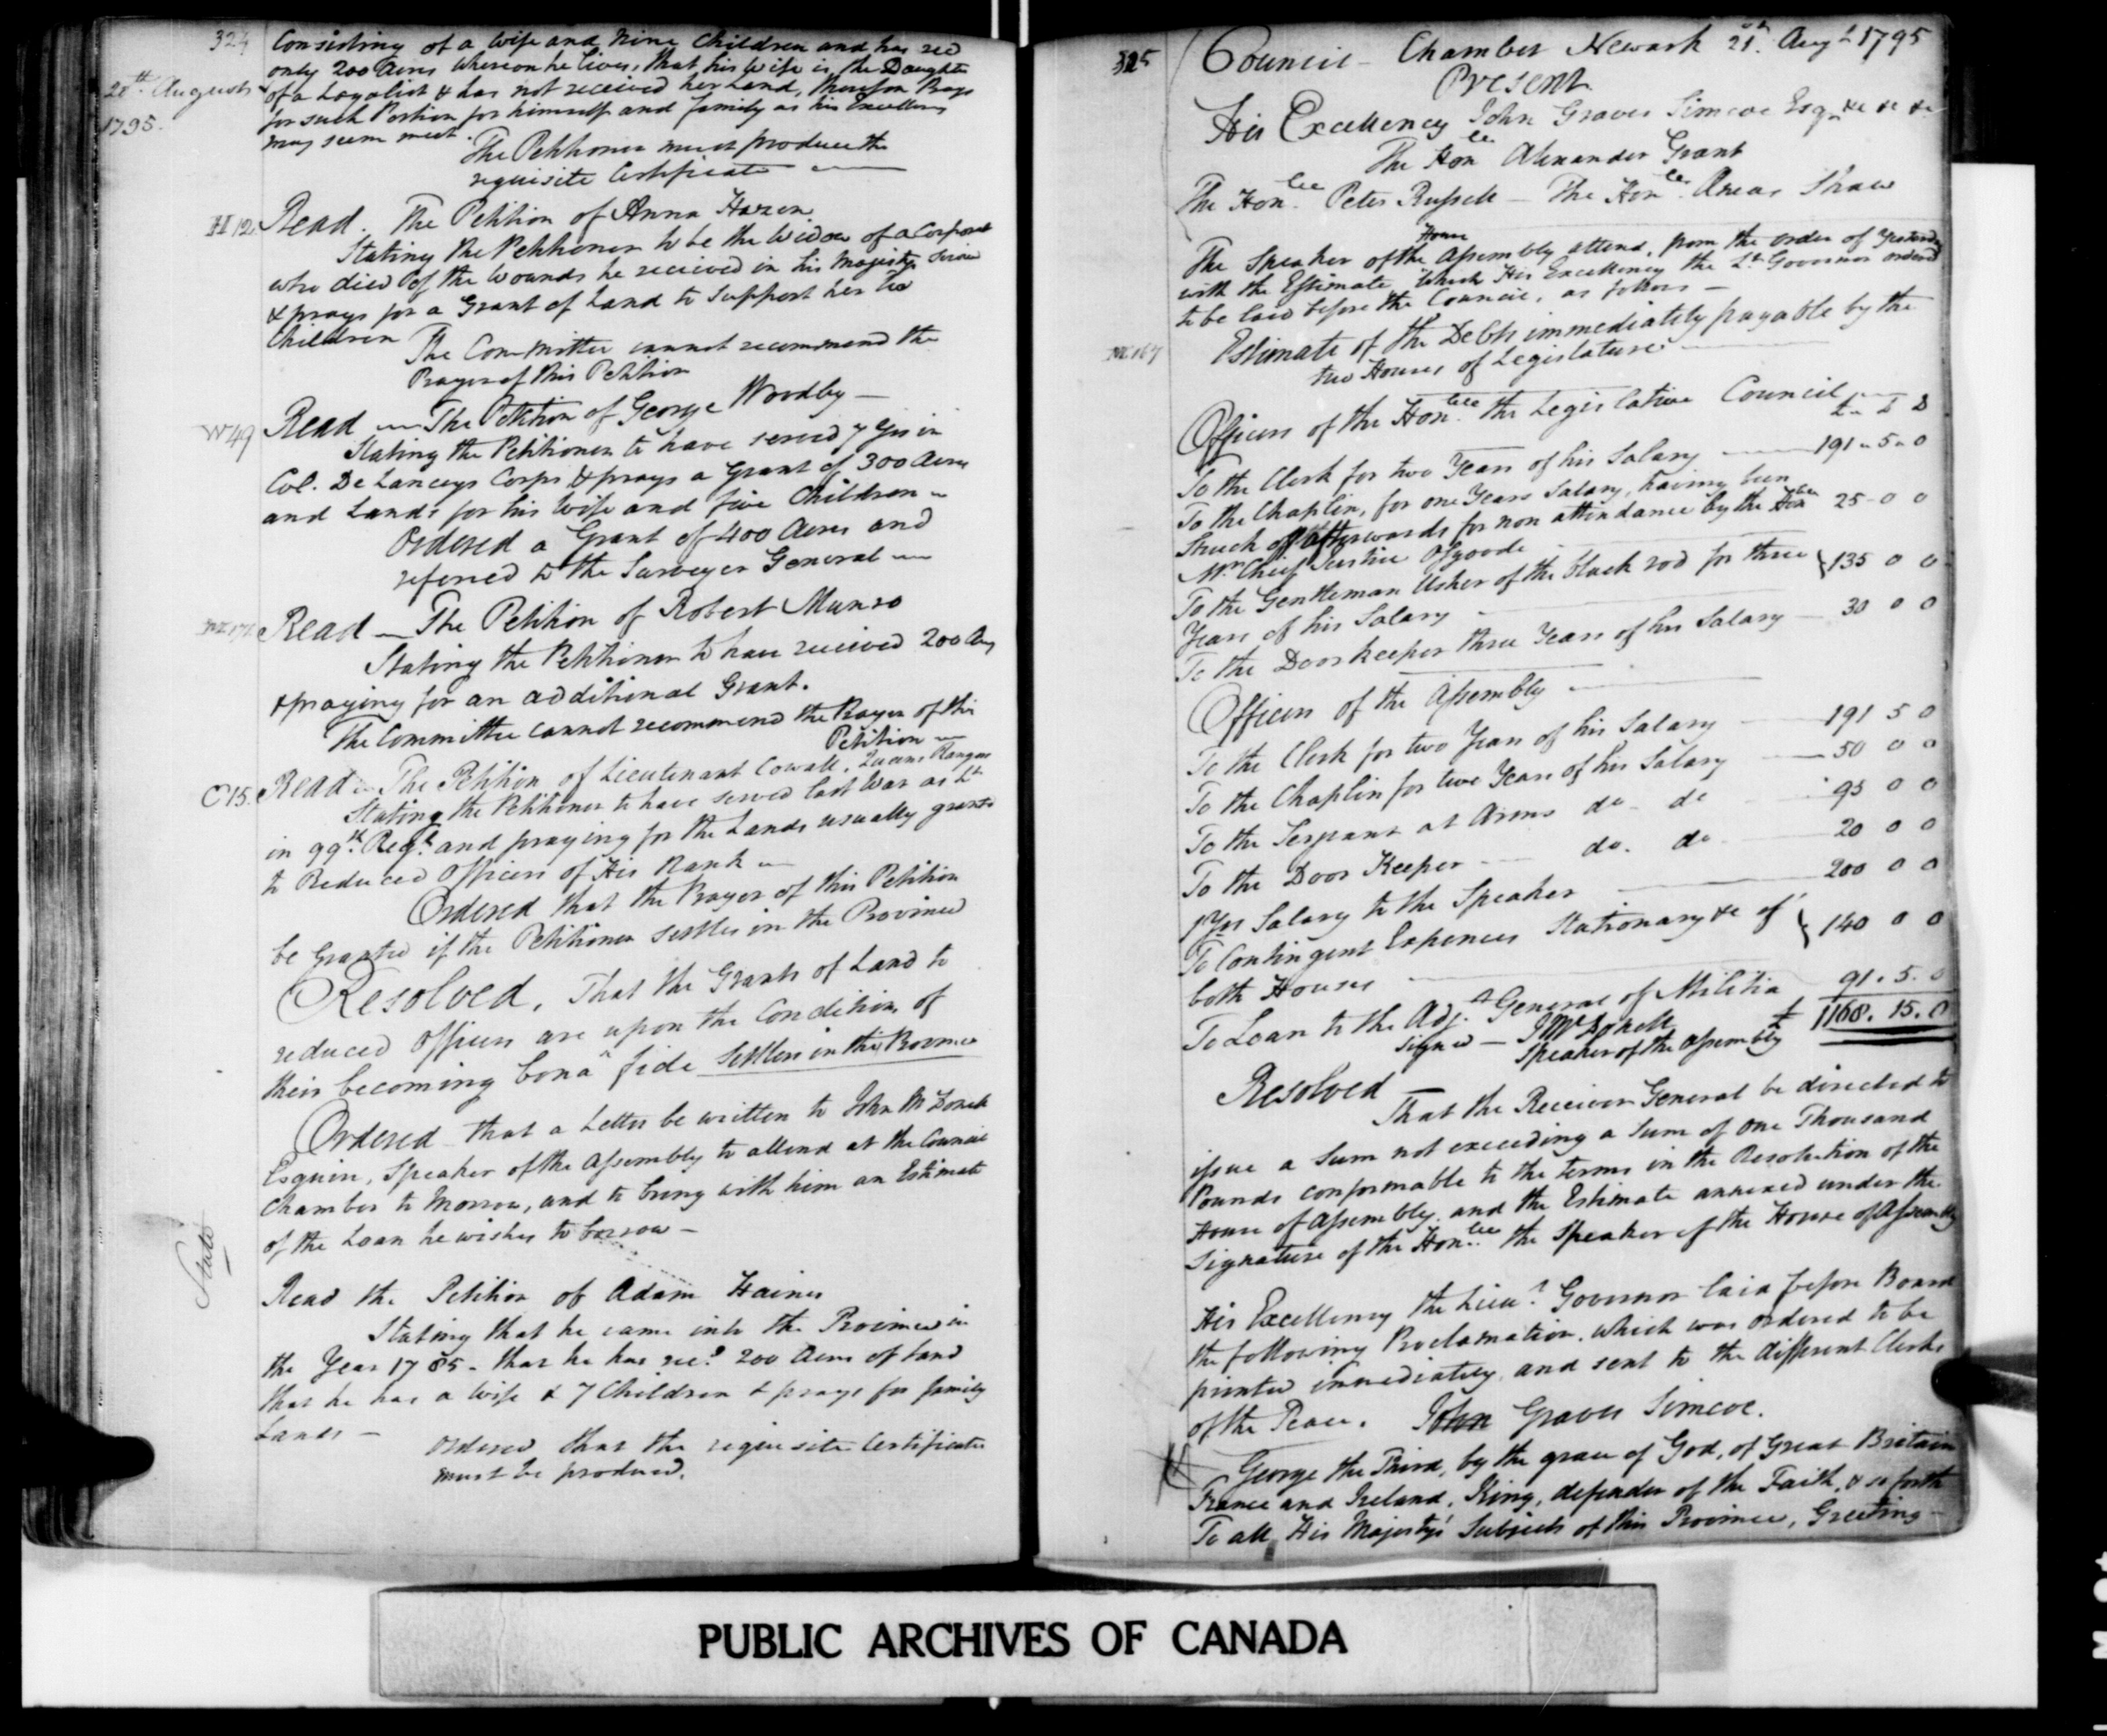 324
20th August
1795.
Consisting of a Wife and Nine Children and has recd
only 200 Acres whereon he lives, that his Wife is the Daughter
of a Loyalist & has not received her Land, therefore Prays
for such Portion for himself and family as his Excellency
may seem meet.
The Petitioner must produce the
requisite Certificate
H 12. Read. The Petition of Anna Hazen
Stating the Petitioner to be the Widow of a Corporal
who died of the Wounds he received in his Majestys Service
& prays for a Grant of Land to Support her two
Children
The Committee cannot recommend the
Prayer of this Petition
W 49 Read — The Petition of George Woodby —
Stating the Petitioner to have served 7 Yrs in
Col. De Lanceys Corps & prays a Grant of 300 Acres
and Lands for his Wife and five Children
Ordered a Grant of 400 Acres and
referred to the Surveyor General —
Read — The Petition of Robert Munro
Stating the Petitioner to have received 200 Acres
& praying for an additional Grant.
The Committee cannot recommend the Prayer of this
Petition —
C 15. Read — The Petition of Lieutenant Cowall, Queens Rangers
Stating the Petitioner to have served last War as Lt
in 99th Regt and praying for the Lands usually granted
to Reduced Officers of His Rank —
Ordered that the Prayer of this Petition
be Granted if the Petitioner settles in the Province
Resolved, That the Grants of Land to
reduced Officers are upon the Condition of
their becoming bona fide Settlers in this Province
Ordered — that a Letter be written to John McDonell
Esquire, Speaker of the Assembly to attend at the Council
Chamber to Morrow, and to bring with him an Estimate
of the Loan he wishes to borrow —
State
Read the Petition of Adam Haines
Stating that he came into the Province in
the Year 1785 - that he has recd 200 Acres of Land
that he has a Wife & 7 Children & prays for family
Lands —
Ordered that the requisite Certificate
must be produced.
325
Council Chamber Newark 21st Augt 1795
Present
His Excellency John Graves Simcoe Esqr &c &c &c
The Honble Alexander Grant
The Honble Peter Russell — The Honble Æneas Shaw
The Speaker of the House Assembly attend, from the order of Yesterday
with the Estimate which His Excellency the Lt Governor ordered
to be laid before the Council, as follows —
Estimate of the Debts immediately payable by the
two Houses of Legislature
Officers of the Honble the Legislative Council
To the Clerk for two Years of his Salary — 191 - 5 - 0
To the Chaplin, for one Years Salary, having been
Struck off afterwards for non attendance by the Honble 25 - 0 0
Mr Chief Justice Osgoode
To the Gentleman Usher of the black rod for three } 135 0 0
Years of his Salary
To the Doorkeeper three Years of his Salary — 30 0 0
Officers of the Assembly
To the Clerk for two Years of his Salary — 191 5 0
To the Chaplin for two Years of his Salary — 50 0 0
To the Serjeant at Arms do do 95 0 0
To the Door Keeper do. do 20 0 0
1 Yrs Salary to the Speaker 200 0 0
To Contingent Expences Stationary &c of } 140 0 0
both Houses
To Loan to the Adjt General of Militia 91 . 5 . 0
Signed — J McDonell £ 1168 . 15 . 0
Speaker of the Assembly
Resolved —
That the Receiver General be directed to
issue a Sum not exceeding a Sum of one Thousand
Pounds conformable to the terms in the Resolution of the
House of Assembly, and the Estimate annexed under the
Signature of the Honble the Speaker of the House of Assembly
His Excellency the Lieut Governor laid before Board
the following Proclamation, which was ordered to be
printed immediately, and sent to the different Clerks
of the Peace. John Graves Simcoe.
George the Third, by the grace of God, of Great Britain
France and Ireland, King, defender of the Faith, & so forth
To all His Majesty's Subjects of this Province, Greeting —
PUBLIC ARCHIVES OF CANADA